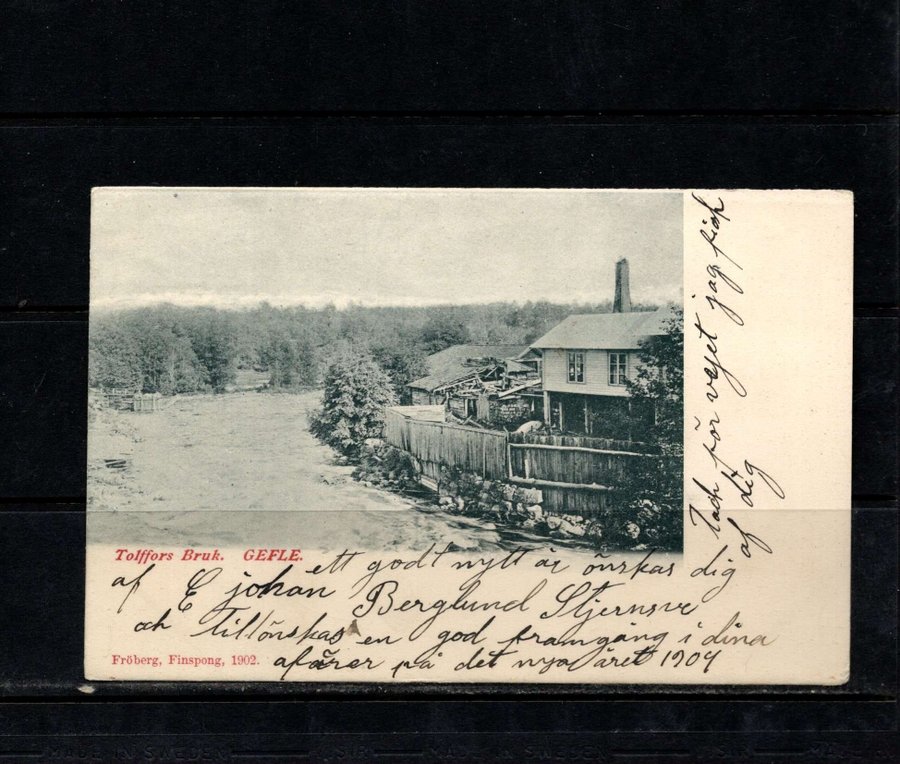 Tolffors Bruk. GEFLE.
ett godt nytt år önskas dig
af E johan Berglund Stjernsve
och tillönskas en god framgång i dina
afärer på det nya året 1904
Fröberg, Finspong, 1902.
Tack för vyet jag fick
af dig
MADE IN SWEDEN